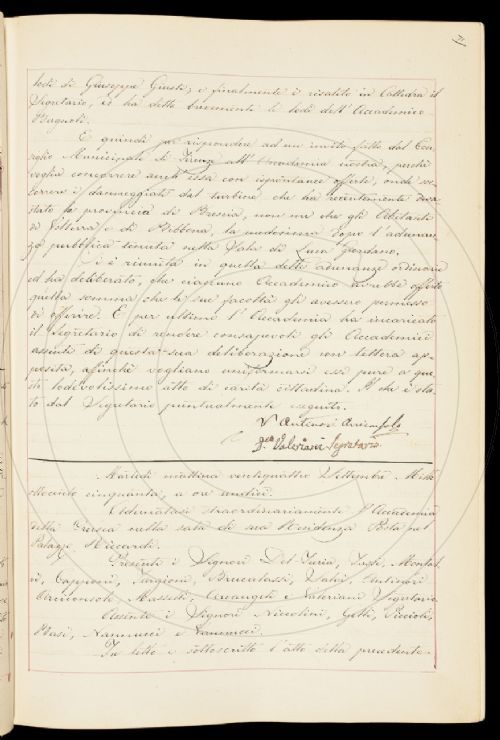 lodi di Giuseppe Giusti; e finalmente è risalito in Cattedra il
Segretario, ed ha detto brevemente le lodi dell'Accademico
Bagnoli.
E quindi per rispondere ad un invito fatto dal Con-
siglio Municipale di Firenze all'Accademia nostra, perchè
voglia concorrere anch'essa con ispontanee offerte, onde soc-
correre i danneggiati dal turbine che ha recentemente deva-
stato la provincia di Brescia, non che gli Abitanti
di Volterra e di Bibbona, la medesima dopo l'adunan-
za pubblica tenuta nella Sala di Luca Giordano,
si è riunita in quella detta adunanza ordinaria
ed ha deliberato, che ciascuno Accademico avrebbe offerto
quella somma che le sue facoltà gli avessero permesso
di offerire. E per ultimo l'Accademia ha incaricato
il Segretario di rendere consapevoli gli Accademici
assenti di questa sua deliberazione con lettera ap-
posita, affinchè vogliano uniformarsi essi pure a que-
sto lodevolissimo atto di carità cittadina. Il che è sta-
to dal Segretario puntualmente eseguito.
V. Antinori Arciconsolo
Valeriani Segretario
Martedì mattina ventiquattro Settembre Mille
ottocento cinquanta, a ore undici.
Adunatasi straordinariamente l'Accademia
della Crusca nella sala di sua Residenza posta nel
Palazzo Riccardi.
Presenti i Signori Del Furia, Tagli, Montal-
vi, Capponi, Targioni, Brucalassi, Salvi, Antinori
Arciconsolo, Masselli, Arcangeli e Valeriani Segretario.
Assenti i Signori Niccolini, Gatti, Puccioti,
Basi, Nannucci e Vannucci.
Fu letto e sottoscritto l'atto della precedente.